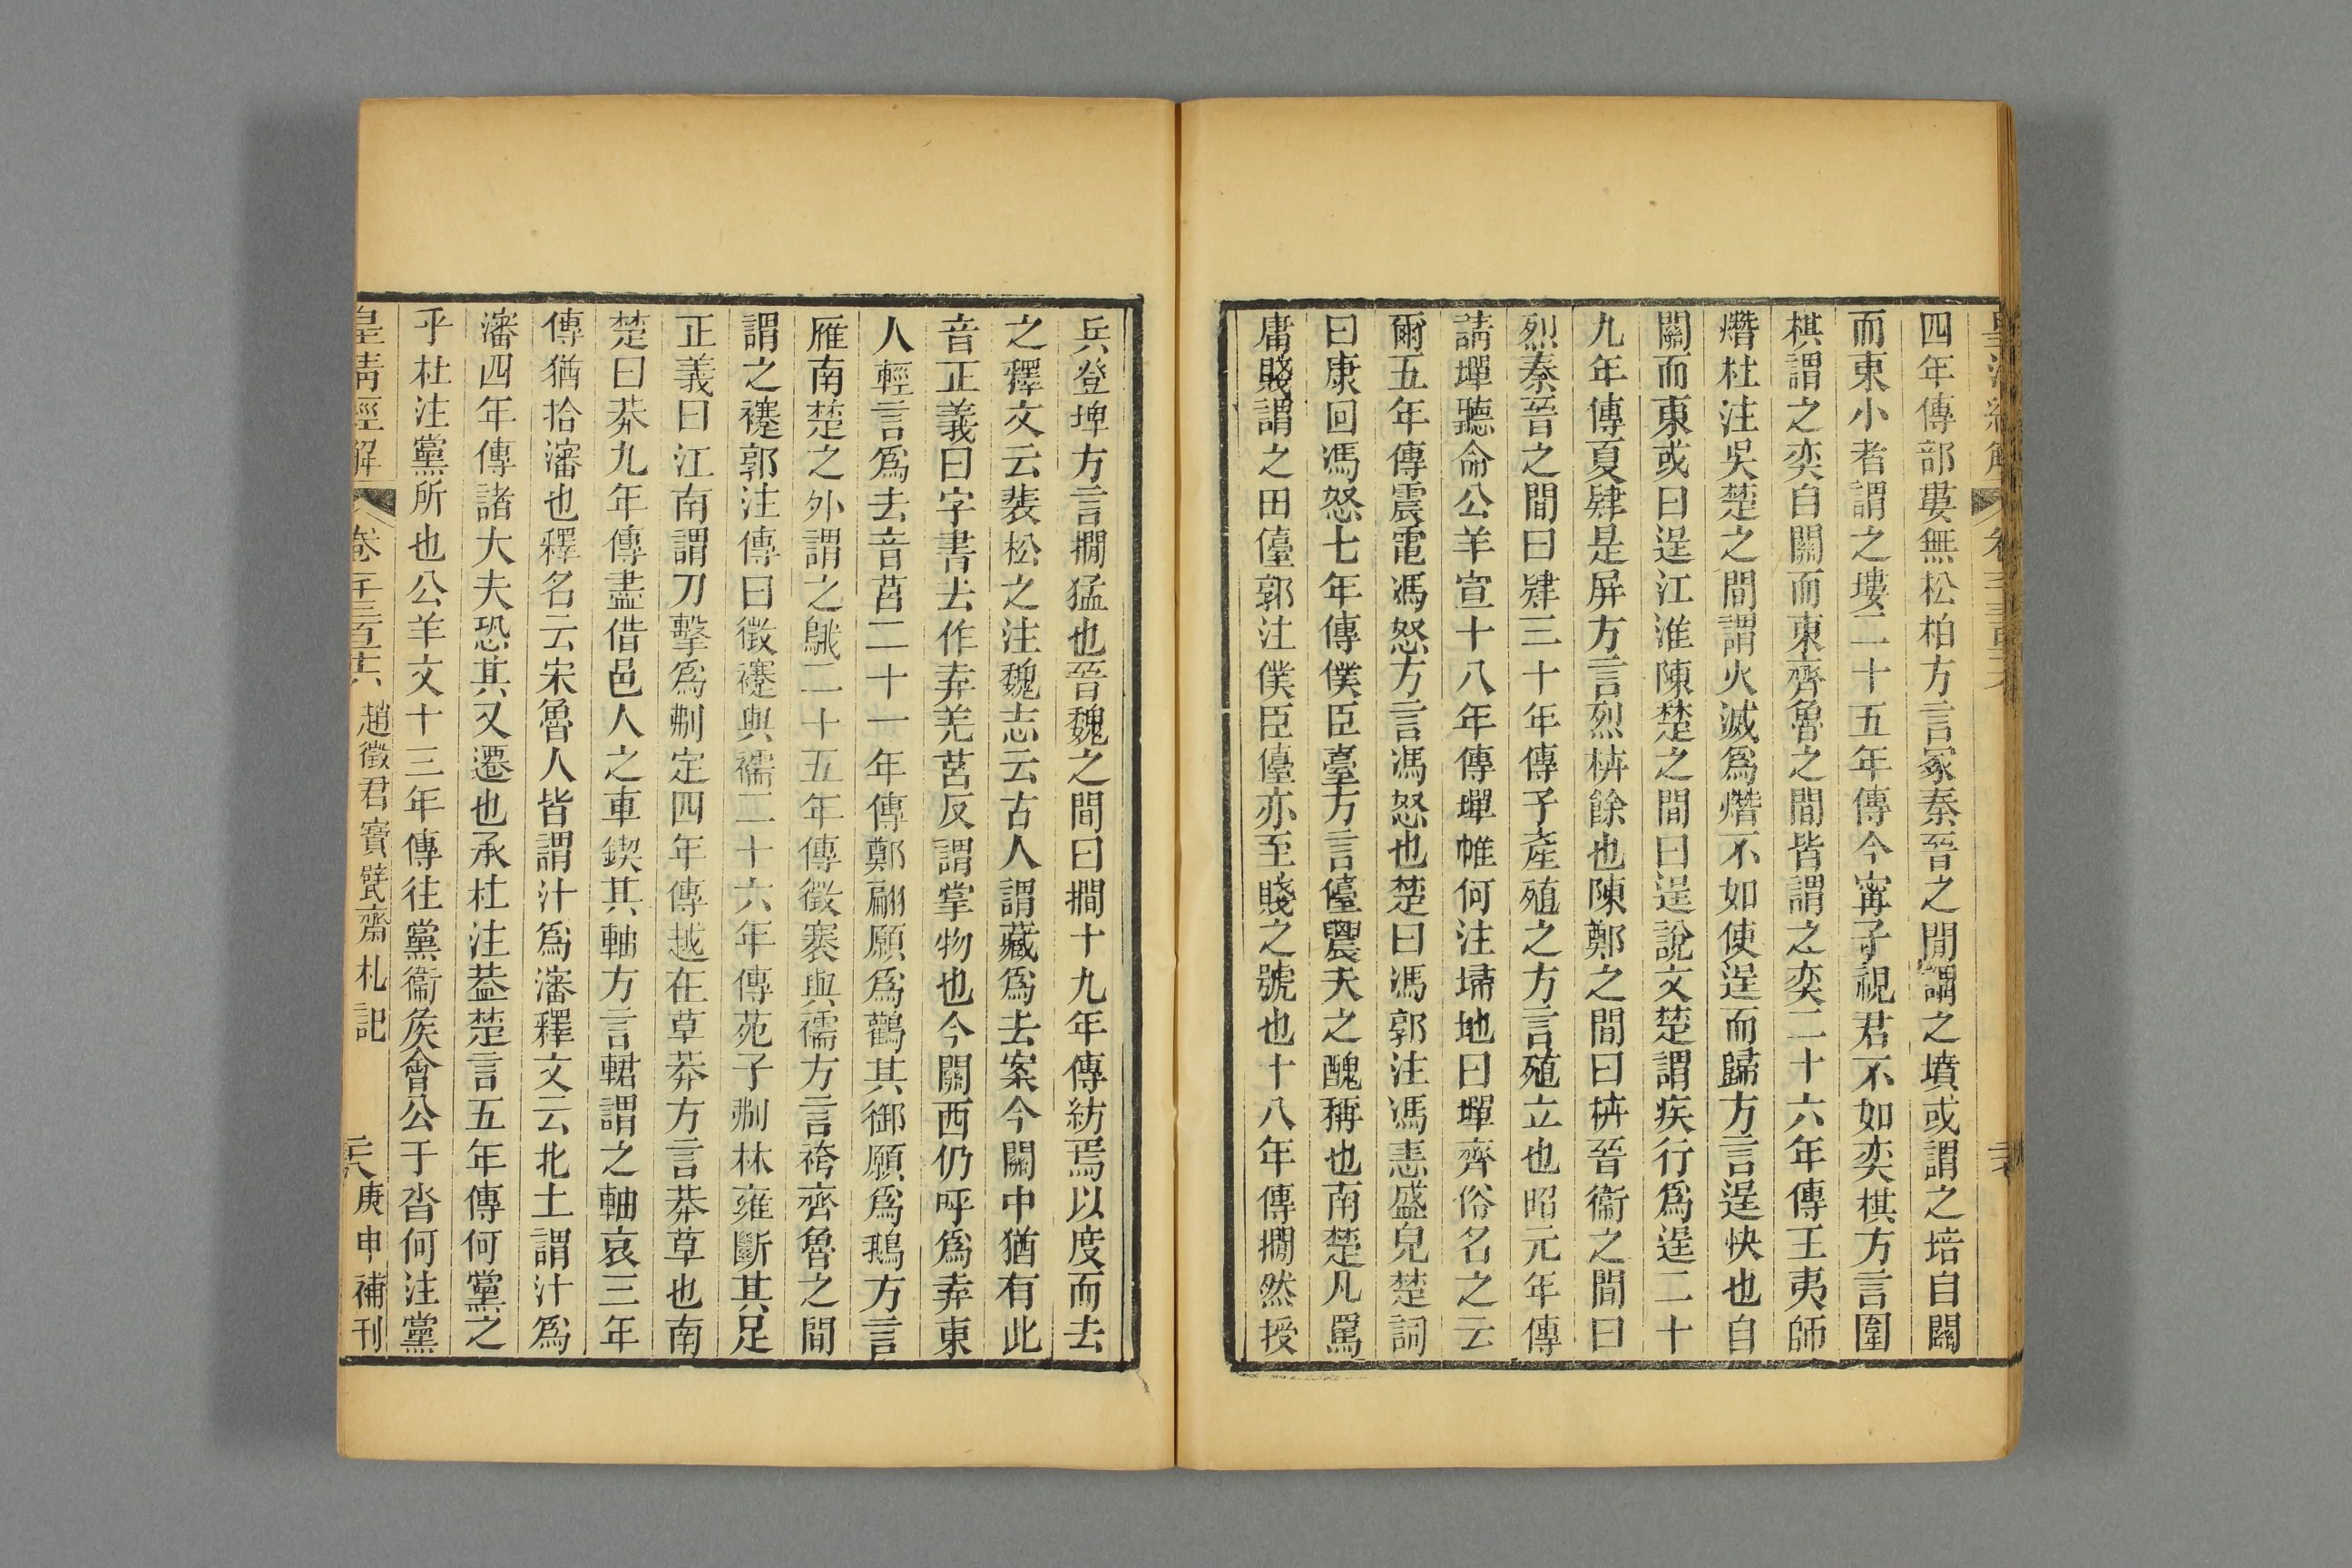 四年傳部婁無松柏方言冢秦晉之閒謂之墳或謂之培自關
而東小者謂之塿二十五年傳今甯子視君不如奕棋方言圍
棋謂之奕自關而東齊魯之間皆謂之奕二十六年傳王夷師
熸杜注吳楚之間謂火滅爲熸不如使逞而歸方言逞快也自
關而東或曰逞江淮陳楚之間曰逞說文楚謂疾行爲逞二十
九年傳夏肄是屏方言烈枿餘也陳鄭之間曰枿晉衞之間曰
烈秦晉之間曰肄三十年傳子產殖之方言殖立也昭元年傳
請墠聽命公羊宣十八年傳墠帷何注埽地曰墠齊俗名之云
爾五年傳震電馮怒方言馮怒也楚曰馮郭注馮恚盛皃楚詞
曰康回馮怒七年傳僕臣臺方言儓農夫之醜稱也南楚凡罵
庸賤謂之田儓郭注僕臣儓亦至賤之號也十八年傳撊然授
兵登埤方言撊猛也晉魏之間曰撊十九年傳紡焉以度而去
之釋文云裴松之注魏志云古人謂藏爲去案今關中猶有此
音正義曰字書去作弆羌莒反謂掌物也今關西仍呼爲弆東
人輕言爲去音莒二十一年傳鄭翩願爲鸛其御願爲鵝方言
雁南楚之外謂之䳘二十五年傳徵褰與襦方言袴齊魯之間
謂之襱郭注傳曰徵襱與襦二十六年傳苑子刜林雍斷其足
正義曰江南謂刀擊爲刜定四年傳越在草莽方言莽草也南
楚曰莽九年傳盡借邑人之車鍥其軸方言輑謂之軸哀三年
傳猶拾瀋也釋名云宋魯人皆謂汁爲瀋釋文云北土謂汁爲
瀋四年傳諸大夫恐其又遷也承杜注葢楚言五年傳何黨之
乎杜注黨所也公羊文十三年傳往黨衞矦會公于沓何注黨
皇淸經解 卷一千三百十六 趙徵君寶甓齋札記 二六 庚申補刊